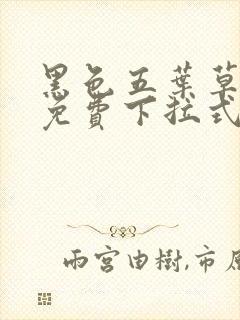 黑色五葉草
免費下拉式
雨宮由樹,市原